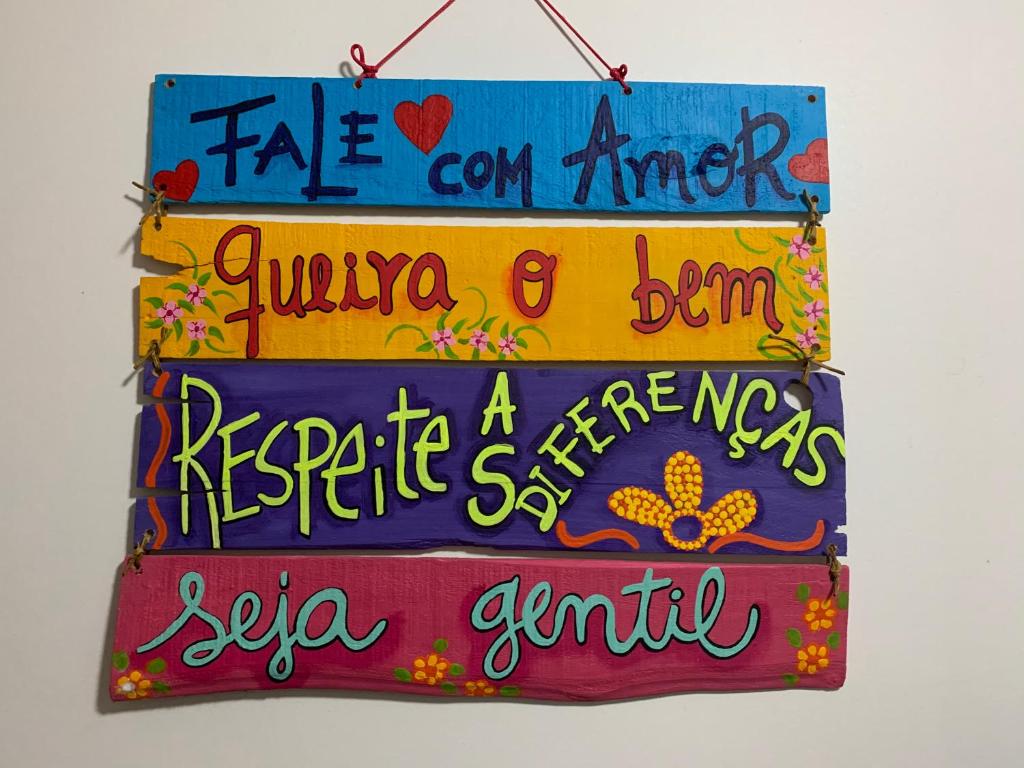 FALE COM AMOR
queira o bem
RESPEITE AS DIFERENÇAS
seja gentil